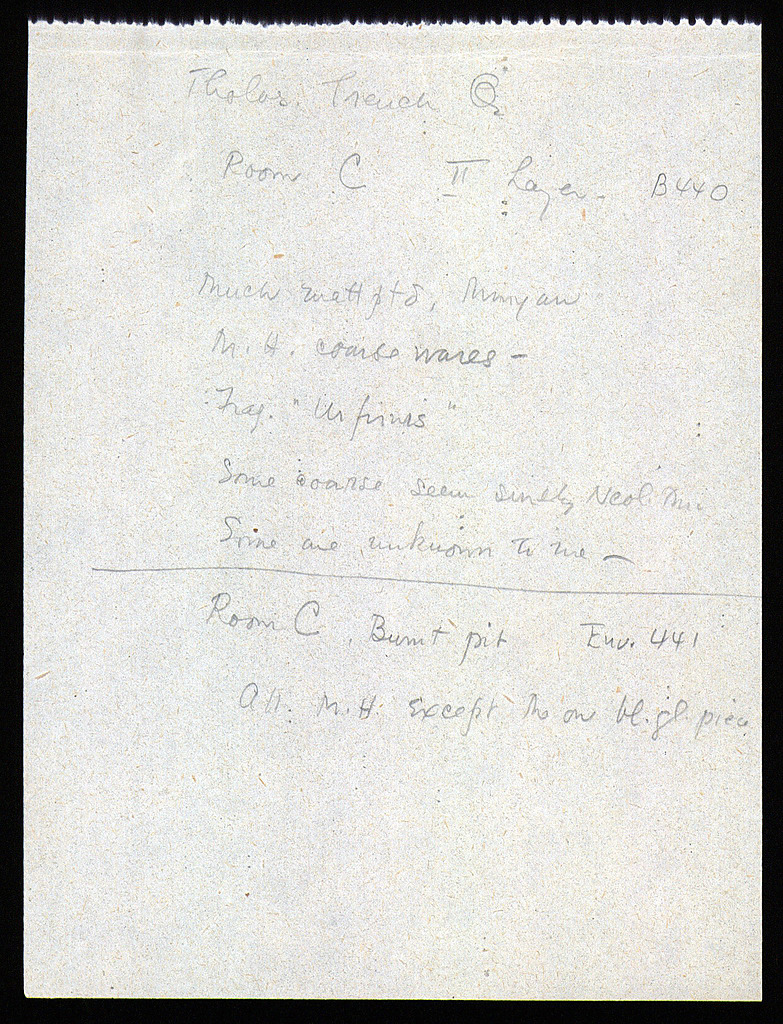 Tholos. Trench Q
Room C II Layer - B440
Much matt ptd, Minyan
M. H. coarse wares -
Frag. "Urfirnis"
Some coarse seem Neolithic
Some are unknown to me -
Room C, Burnt pit Env. 441
All M.H. except one bl. gl. piece